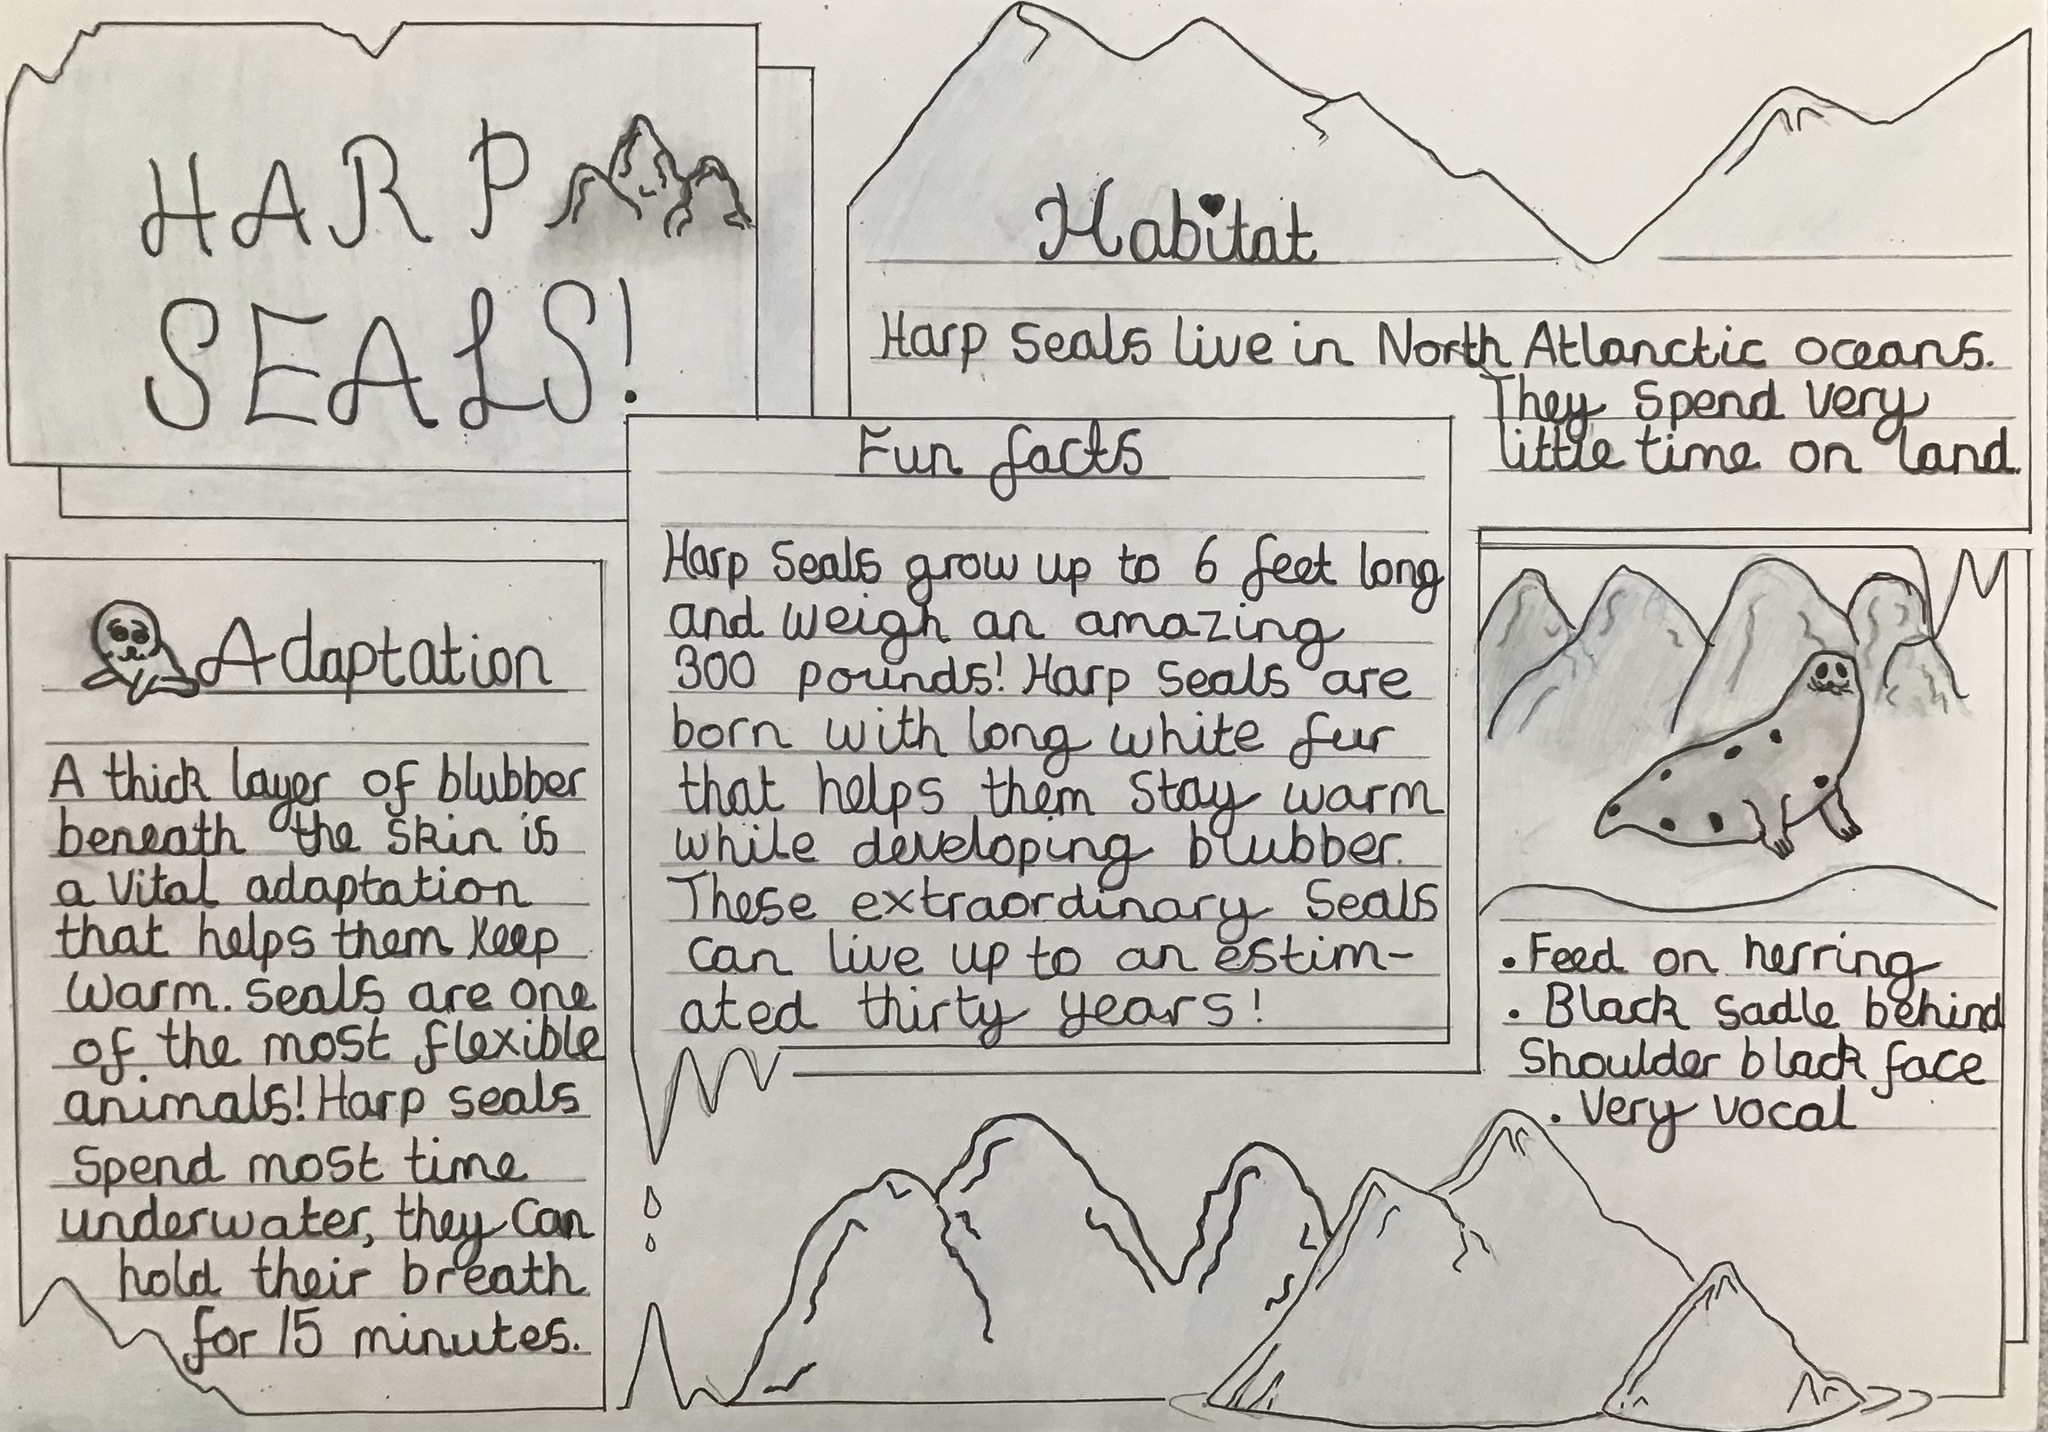 HARP
SEALS!
Habitat
Harp Seals live in North Atlanctic oceans.
They Spend very
little time on land.
Fun facts
Harp Seals grow up to 6 feet long
and weigh an amazing
300 pounds! Harp Seals are
born with long white fur
that helps them Stay warm
while developing blubber.
These extraordinary Seals
can live up to an estim-
ated thirty years!
Adaptation
A thick layer of blubber
beneath the skin is
a vital adaptation
that helps them Keep
warm. Seals are one
of the most flexible
animals! Harp seals
Spend most time
underwater, they can
hold their breath
for 15 minutes.
• Feed on herring
• Black sadle behind
Shoulder black face
• Very vocal